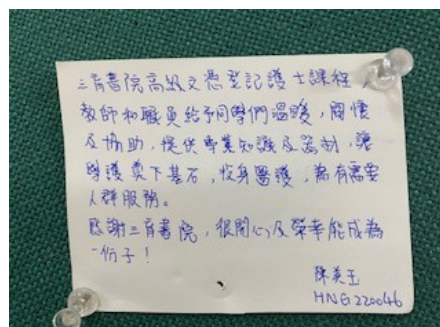 三育書院高級文憑登記護士課程，
教師和職員給予同學們溫暖，關懷
及協助，提供專業知識及器材，讓
學護奠下基石，投身醫護，為有需要
人群服務。
感謝三育書院，很開心及榮幸能成為
一份子！
陳美玉
HNG220046